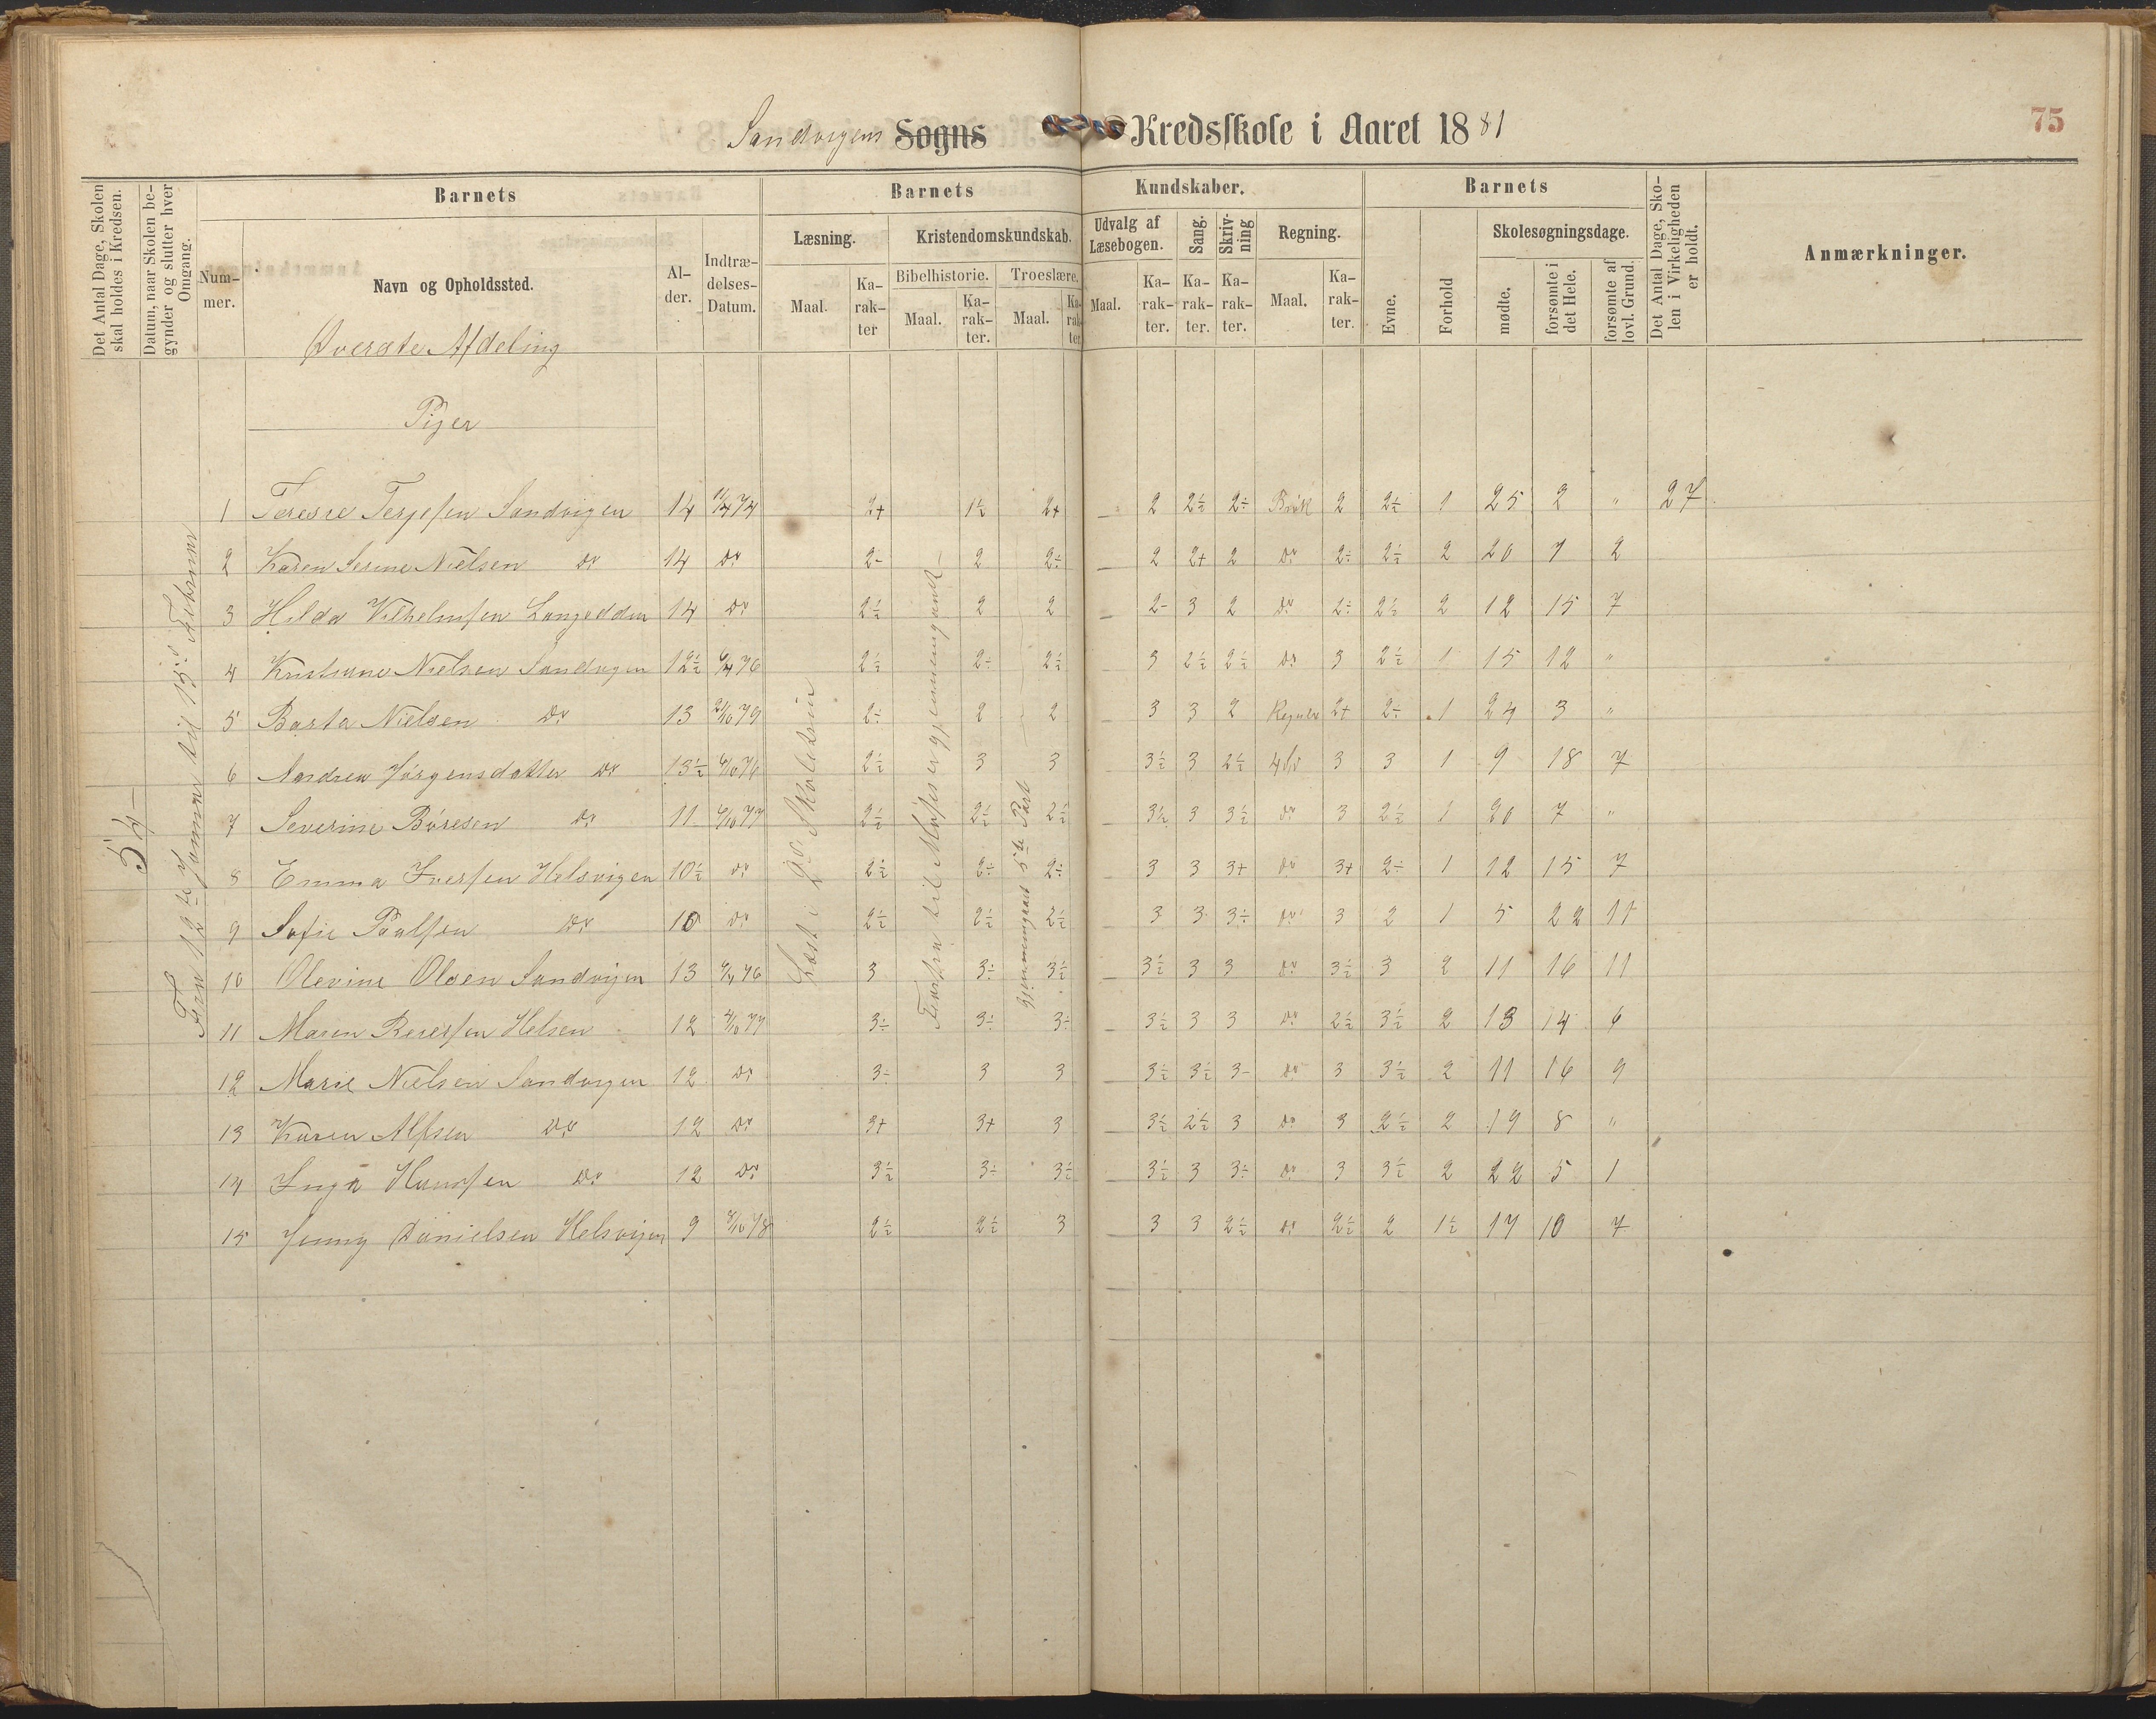 75
Sandvigens Sogns Kredsskole i Aaret 1881
Det Antal Dage, Skolen skal holdes i Kredsen.
Datum, naar Skolen begynder og slutter hver Omgang.
Barnets
Nummer.
Navn og Opholdssted.
Alder.
Indtrædelses-Datum.
Barnets Kundskaber.
Læsning.
Maal.
Karakter
Kristendomskundskab.
Bibelhistorie.
Maal.
Karakter.
Troeslære.
Maal.
Karakter
Udvalg af Læsebogen.
Maal.
Karakter.
Sang.
Karakter.
Skrivning
Karakter.
Regning.
Maal.
Karakter.
Barnets
Evne.
Forhold
Skolesøgningsdage.
mødte.
forsømte i det Hele.
forsømte af lovl. Grund.
Det Antal Dage, Skolen i Virkeligheden er holdt.
Anmærkninger.
Øverste Afdeling
Piger
54
Fra 12te Januar til 15de Februar
Læst i 2de Skoletrin
Fra til Moses er gjennemgaaet
gjennemgaaet 5te Part
1 Terese Terjesen Sandvigen 14 74 2+ 1½ 2+ 2 2½ 2÷ Brøk 2 2½ 1 25 2 " 27
2 Karen Serine Nielsen do 14 do 2- 2 2÷ 2 2+ 2 do 2÷ 2½ 2 20 7 2
3 Hilda Vilhelmsen Langodden 14 do 2½ 2 2 2- 3 2 do 2÷ 2½ 2 12 15 7
4 Kristiane Nielsen Sandvigen 12½ 76 2½ 2÷ 2½ 3 2½ 2½ do 3 2½ 1 15 12 "
5 Barta Nielsen do 13 79 2÷ 2 2 3 3 2 2+ 2÷ 1 24 3 "
6 Andrea Jørgensdatter do 13½ 6/10 76 2½ 3 3 3½ 3 2½ 3 3 1 9 18 7
7 Severine Børesen do 11 6/10 77 2½ 2½ 2½ 3½ 3 3½ do 3 2½ 1 20 7 "
8 Emma Iversen Helsvigen 10½ do 2½ 2÷ 2÷ 3 3 3+ do 3+ 2÷ 1 12 15 7
9 Sofie Paalsen do 10 do 2½ 2½ 2½ 3 3 3÷ do 3 2 1 5 22 11
10 Olevine Olsen Sandvigen 13 76 3 3÷ 3½ 3½ 3 3 do 3½ 3 2 11 16 11
11 Maren 12 77 3÷ 3÷ 3÷ 3½ 3 3 do 2½ 3½ 2 13 14 6
12 Marie Nielsen Sandvigen 12 do 3÷ 3 3 3½ 3½ 3- do 3 3½ 2 11 16 9
13 Karen Alfsen do 12 do 3+ 3+ 3 3½ 2½ 3 do 3 2½ 2 19 8 "
14 Inga Hansen do 12 do 3½ 3÷ 3½ 3½ 3 3÷ do 3 3½ 2 22 5 1
15 Jenny Danielsen Helsvigen 9 8/10 78 2½ 2½ 3 3 3 2½ do 2½ 2 1½ 17 10 7